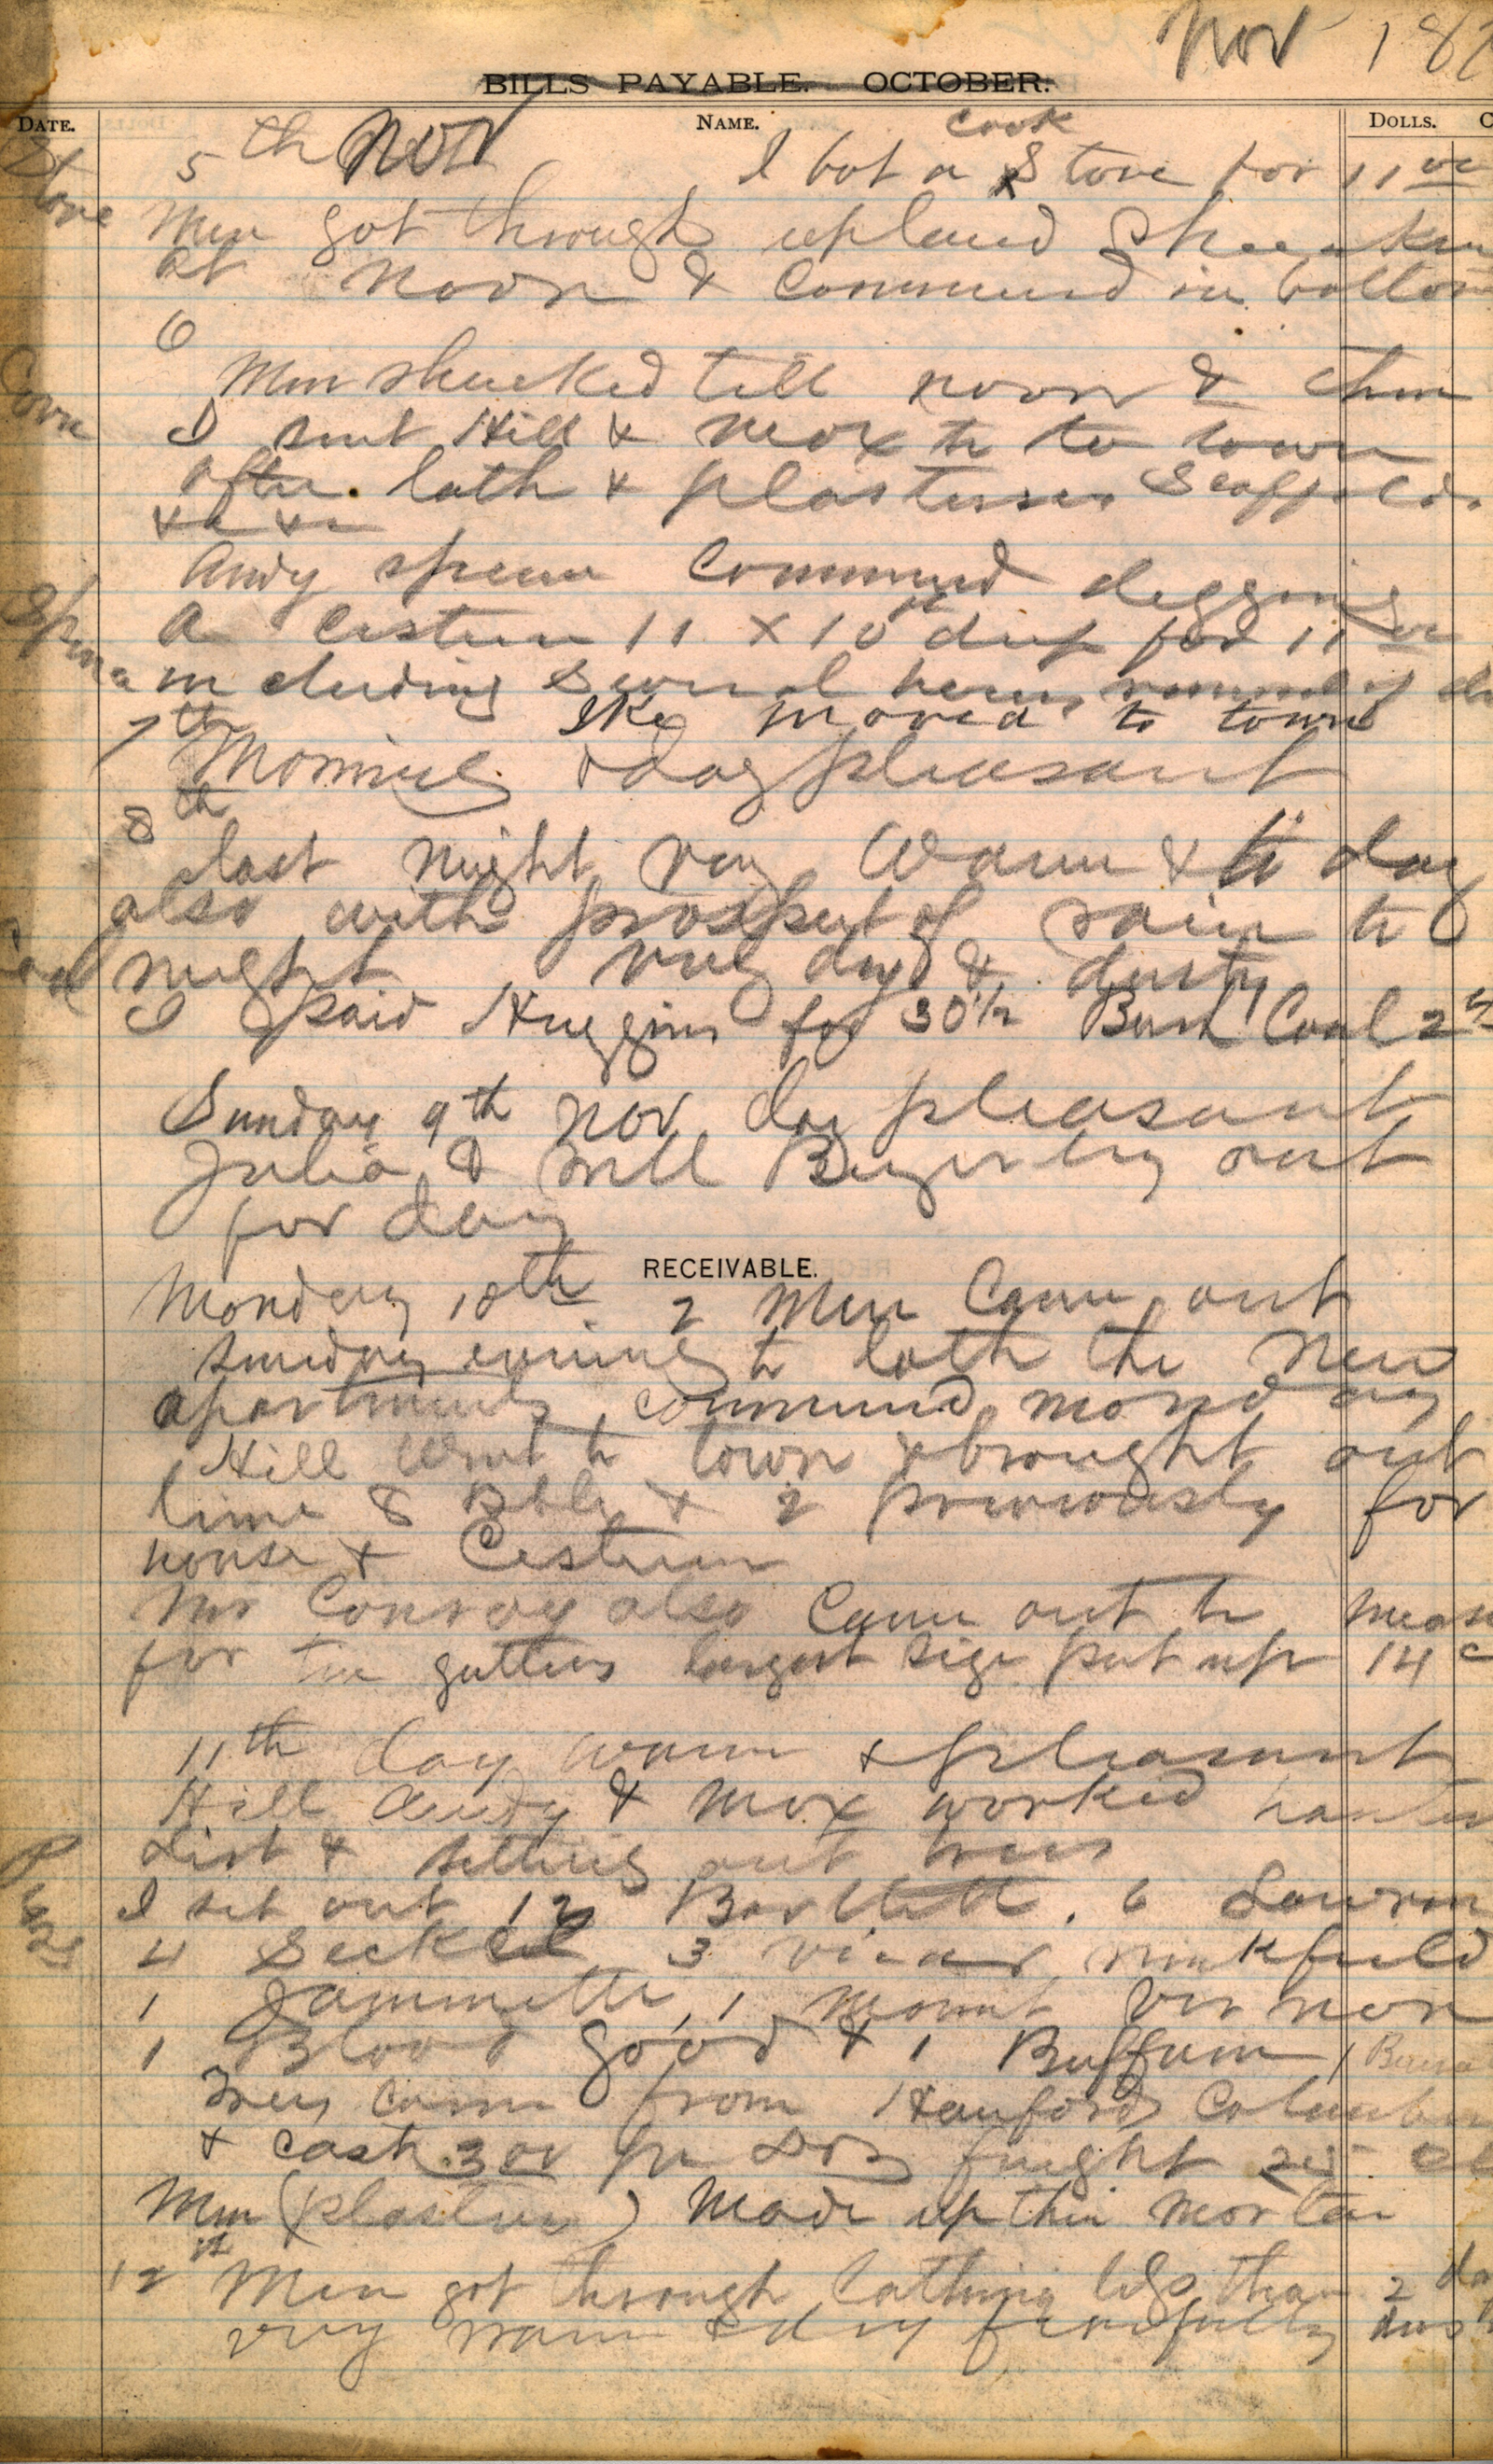 Nov 187
BILLS PAYABLE. OCTOBER.
DATE. NAME. DOLLS. C
Stove
5th Nov I bot a Cook Stove for 11 00
Men got through upland
at Noon & Commencd in bottom
6
Corn
Men shucked till noon & then
I sent Hill & Mox to to town
after lath & plasterers Scaffolds
&c &c
Andy Commencd digging
a Cistern 11 x 10 ft deep for 11 00
including Several
7th Ike moved to town
Morning & day pleasant
8th
last night very Warm & to day
also with prospect of rain to
night very dry & dusty
Coal
I paid Huggins for 30 1/2 Bush Coal 2
Sunday 9th Nov day pleasant
Julia & Will out
for day
RECEIVABLE.
Monday 10th 2 Men Came out
sunday evening to lath the New
apartments commencd monday
Hill Went to town & brought out
lime 8 Bbls & 2 previously for
house & Cistern
Mr Conroy also Came out to
for tin gutters largest size put up 14 c
11th day warm & pleasant
Hill Andy & Mox worked
dirt & setting out trees
I set out 12 Bartlett. 6
4 Seckel 3 vicar winkfield
1 Jaminette, 1 Mount Vernon
1 Blood good & 1 Buffum 1
Trees came from Hanford
& cash 3 00 per Doz freight 25
Men (plasterers) Made up their Mortar
12th Men got through lathing less than 2
very warm & dry fearfully